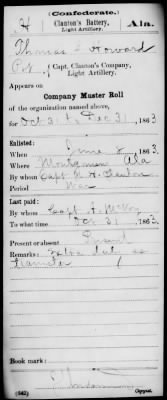 (Confederate.)
H Clanton's Battery, Ala.
Light Artillery.
Thomas Howard
Pvt, Capt. Clanton's Company,
Light Artillery.
Appears on
Company Muster Roll
of the organization named above,
for Oct 31 to Dec 31, 1863.
Enlisted:
When June 8, 1863.
Where Montgomery Ala
By whom Capt N. H. Clanton
Period War
Last paid:
By whom Capt
To what time Oct 31, 1863.
Present or absent Present
Remarks: Extra duty as
teamster
Book mark:
(642) Copyist.